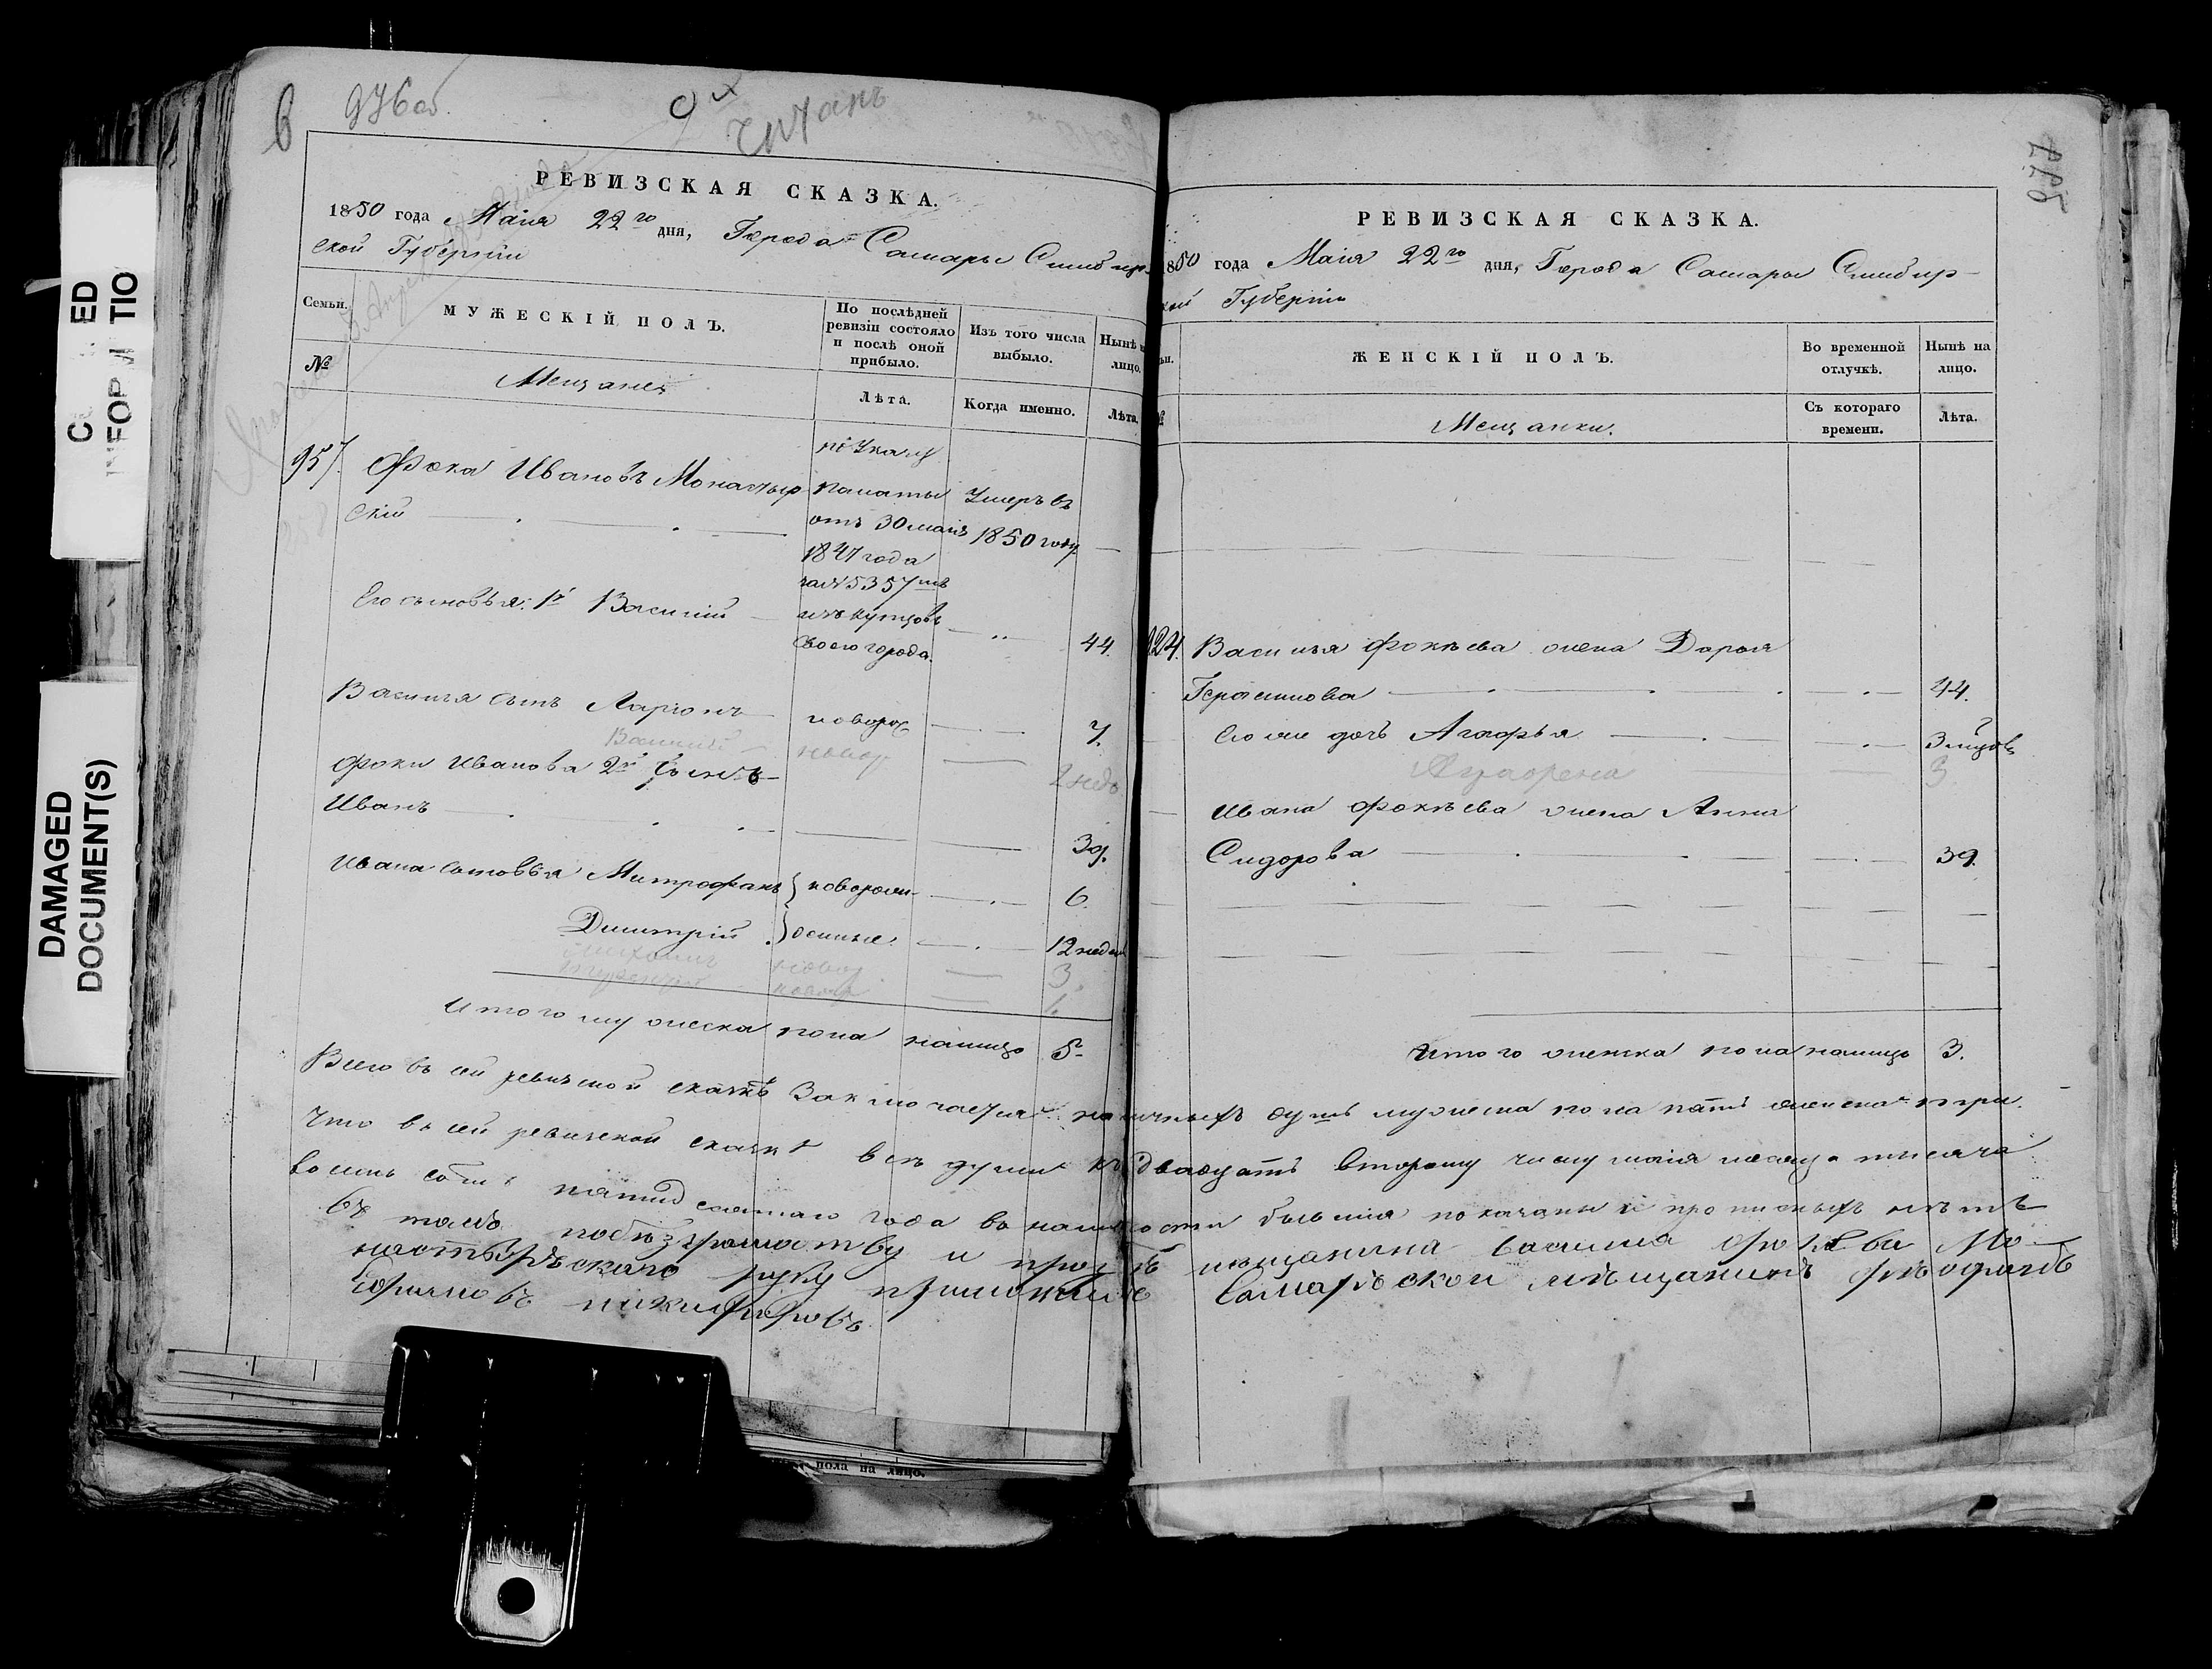 6
976 об.
9я
читанъ
РЕВИЗСКАЯ СКАЗКА.
1850 года Маія 22го дня, Города Самары Симбир-
ской Губерніи
Семьи.
№
МУЖЕСКІЙ ПОЛЪ.
Мещане
По послѣдней ревизіи состояло и послѣ оной прибыло.
Лѣта.
Изъ того числа выбыло.
Когда именно.
Нынѣ на лицо.
Лѣта.
957.
Фока Ивановъ Монастыр
скій
по Указу
палаты
отъ 30 маія
1847 года
за №5357мъ
изъ купцовъ
своего города.
Умеръ въ
1850 году
Его сыновья: 1й Василій
44.
Василья сынъ Ларіонъ
новорож
7.
Василій
новор
2 нед
Фоки Иванова 2й Сынъ
Иванъ
39.
Ивана сыновья Митрофанъ
новорож-
6.
Димитрій
денные.
12 недѣль
новор
3
новор
1.
Итого мужеска пола налицо 5
РЕВИЗСКАЯ СКАЗКА.
1850 года Маія 22го дня, Города Самары Симбир-
ской Губерніи
977
ЖЕНСКІЙ ПОЛЪ.
Мещанки.
Во временной отлучкѣ.
Съ котораго времени.
Нынѣ на лицо.
Лѣта.
Василья Фокѣева жена Дарья
Герасимова
44.
Его же дочь Агафья
3
3
Ивана Фокѣева жена Анна
Сидорова
39.
Итого женска пола налицо 3.
Всего въ сей ревизской сказкѣ Заключается наличныхъ душъ мужеска пола пять женска три.
Что въ сей ревизской сказкѣ всѣ души къ двадцать второму числу маія месяца тысяча
восемь сотъ пятидесятаго года въ наличности бывшія показаны и прописныхъ нѣтъ
въ томъ побезграматству и прозбѣ мещанина Василиа Фокева Мо-
настырьскаго руку приложилъ Самарьской мѣщанинъ
никифоровъ